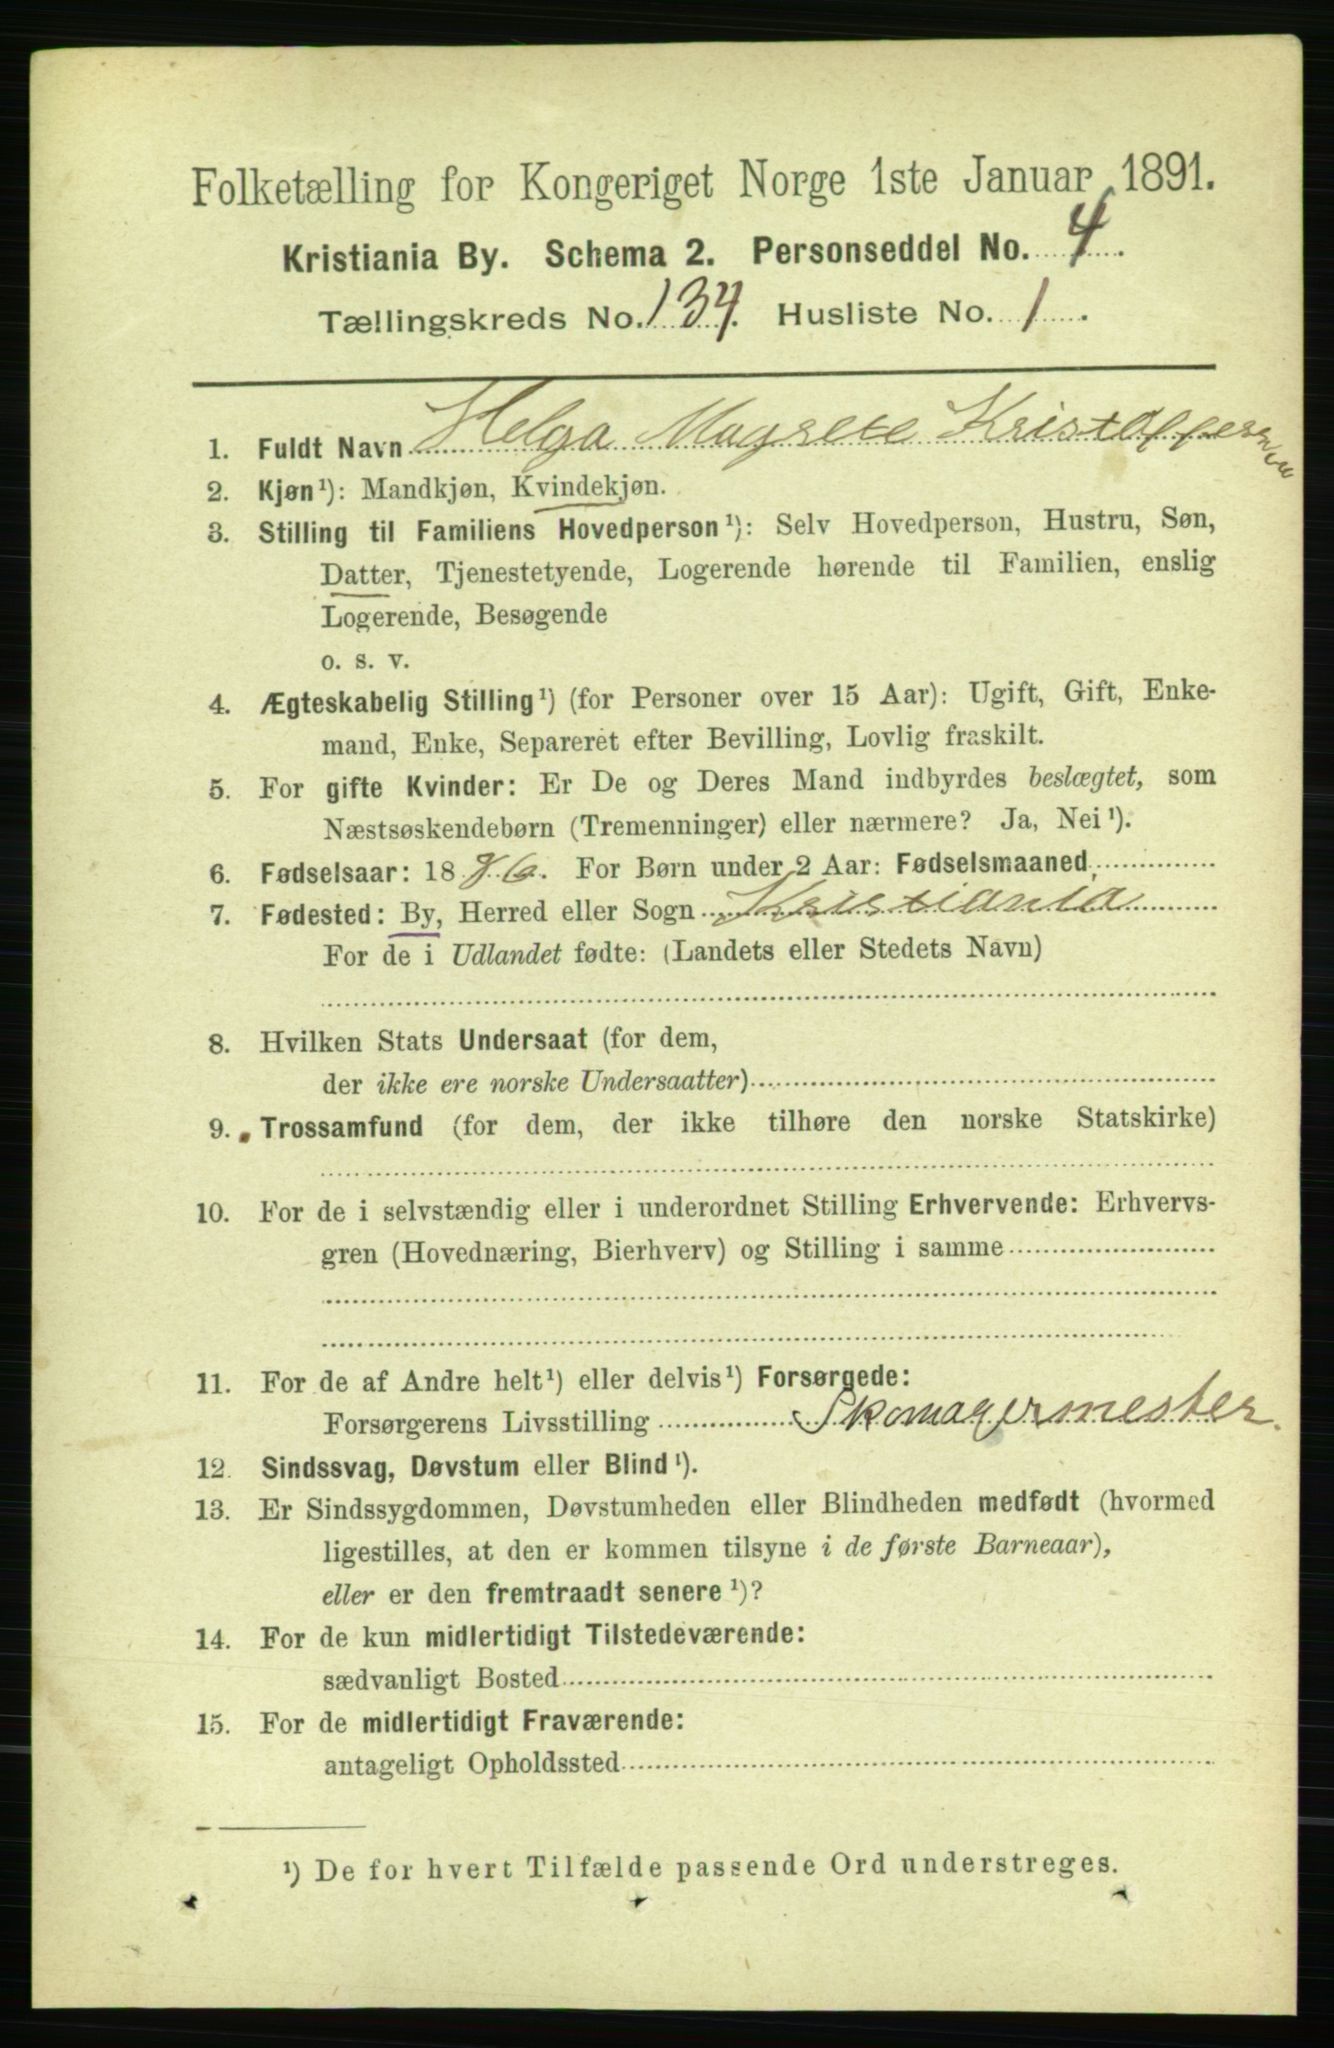 Folketælling for Kongeriget Norge 1ste Januar 1891.
Kristiania By. Schema 2. Personseddel No. 4.
Tællingskreds No. 134. Husliste No. 1.
1. Fuldt Navn Helga Magrete Kristoffersen
2. Kjøn¹): Mandkjøn, Kvindekjøn.
3. Stilling til Familiens Hovedperson¹): Selv Hovedperson, Hustru, Søn,
Datter, Tjenestetyende, Logerende hørende til Familien, enslig
Logerende, Besøgende
o. s. v.
4. Ægteskabelig Stilling¹) (for Personer over 15 Aar): Ugift, Gift, Enke-
mand, Enke, Separeret efter Bevilling, Lovlig fraskilt.
5. For gifte Kvinder: Er De og Deres Mand indbyrdes beslægtet, som
Næstsøskendebørn (Tremenninger) eller nærmere? Ja, Nei¹).
6. Fødselsaar: 1886. For Børn under 2 Aar: Fødselsmaaned
7. Fødested: By, Herred eller Sogn Kristiania
For de i Udlandet fødte: (Landets eller Stedets Navn)
8. Hvilken Stats Undersaat (for dem,
der ikke ere norske Undersaatter)
9. Trossamfund (for dem, der ikke tilhøre den norske Statskirke)
10. For de i selvstændig eller i underordnet Stilling Erhvervende: Erhvervs-
gren (Hovednæring, Bierhverv) og Stilling i samme
11. For de af Andre helt¹) eller delvis¹) Forsørgede:
Forsørgerens Livsstilling Skomagermester.
12. Sindssvag, Døvstum eller Blind¹).
13. Er Sindssygdommen, Døvstumheden eller Blindheden medfødt (hvormed
ligestilles, at den er kommen tilsyne i de første Barneaar),
eller er den fremtraadt senere¹)?
14. For de kun midlertidigt Tilstedeværende:
sædvanligt Bosted
15. For de midlertidigt Fraværende:
antageligt Opholdssted
¹) De for hvert Tilfælde passende Ord understreges.